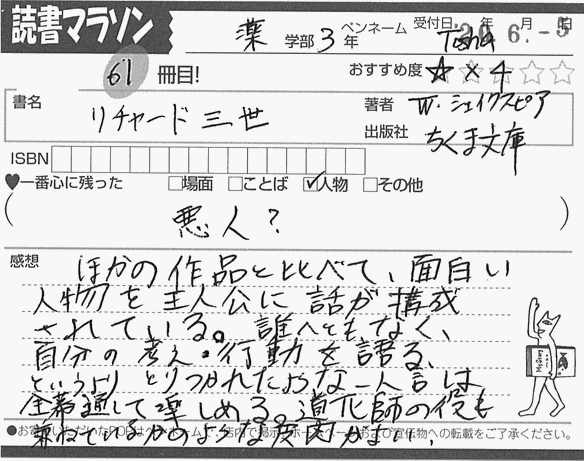 読書マラソン
薬 学部 3 年
ペンネーム
受付日: 年 6月 -5日
61 冊目!
おすすめ度 ☆×4
書名 リチャード三世
著者 W.シェイクスピア
出版社 ちくま文庫
ISBN
♥一番心に残った □場面 □ことば ☑人物 □その他
(悪人?)
感想
ほかの作品と比べて、面白い
人物を主人公に話が構成
されている。誰へともなく、
自分の考え・行動を語る、
というよりとりつかれたような一人言は
全幕通して楽しめる。道化師の役も
兼ねているかのような皮肉がまたいい。